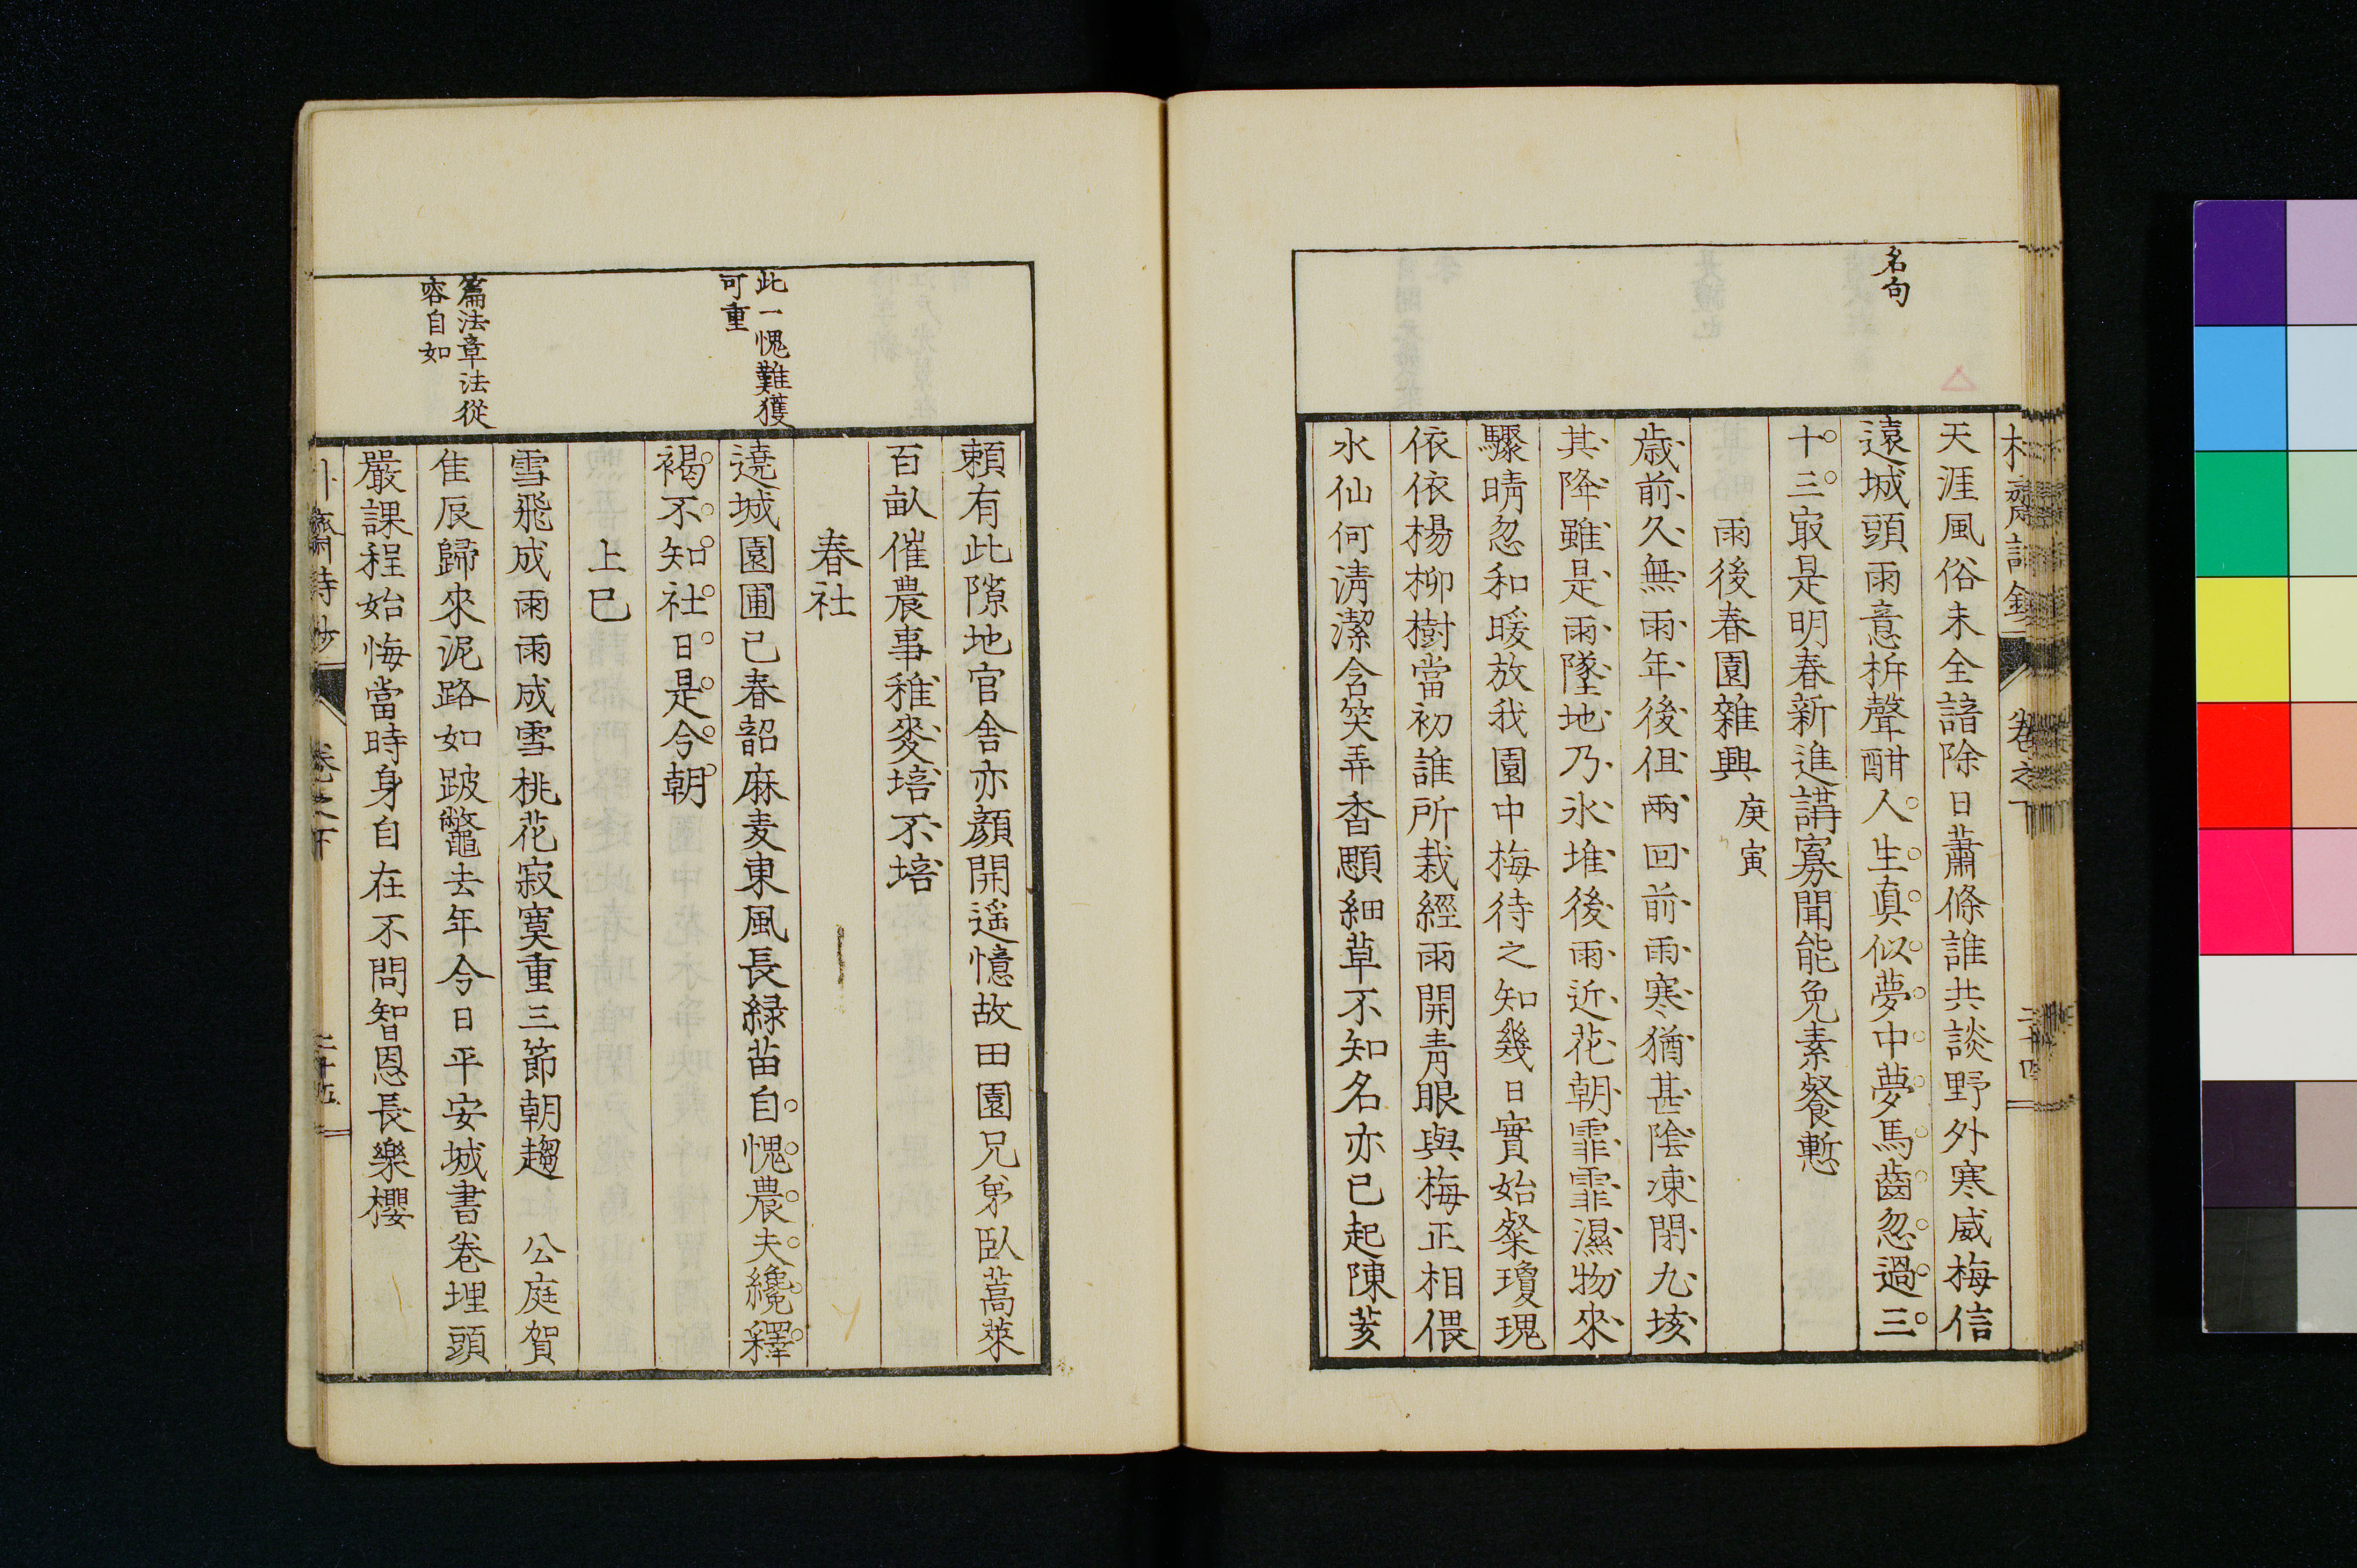 名句
天涯風俗未全諳除日蕭條誰共談野外寒威梅信
遠城頭雨意柝聲酣人生真似夢中夢馬齒忽過三
十三㝡是明春新進講寡聞能免素餐慙
雨後春園雜興 庚寅
歲前久無雨年後但兩回前雨寒猶甚陰凍閉九垓
其降雖是雨墜地乃氷堆後雨近花朝霏霏濕物來
驟晴忽和暖放我園中梅待之知幾日實始粲瓊瑰
依依楊柳樹當初誰所栽經雨開青眼與梅正相偎
水仙何清潔含笑弄香顋細草不知名亦已起陳荄
此一愧難獲
可重
篇法章法從
容自如
頼有此隙地官舍亦顔開遥憶故田園兄弟臥蒿萊
百畝催農事稚麥培不培
春社
遶城園圃已春韶麻麦東風長緑苗自愧農夫纔釋
褐不知社日是今朝
上巳
雪飛成雨雨成雪桃花寂寞重三節朝趨 公庭賀
隹辰歸來泥路如跛鼈去年今日平安城書卷埋頭
嚴課程始悔當時身自在不問智恩長樂櫻
卷之下